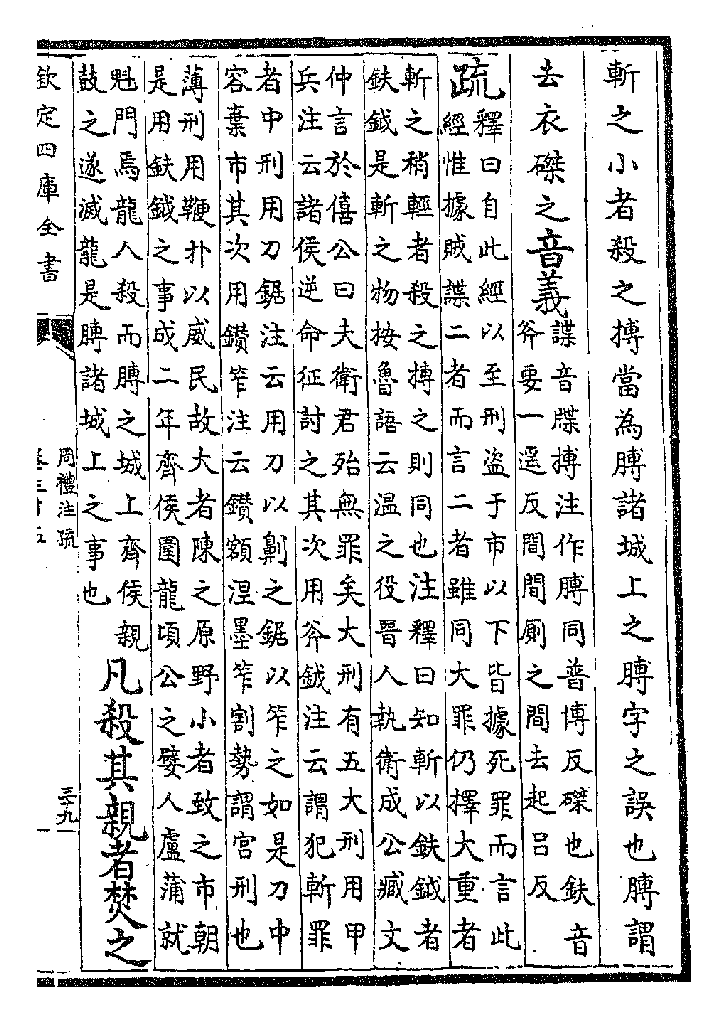 斬之小者殺之搏當為膊諸城上之膊字之誤也膊謂
去衣磔之音義諜音牒搏注作膊同普博反磔也鈇音
斧要一遥反間間廁之間去起吕反
疏釋曰自此經以至刑盜于市以下皆據死罪而言此
經惟據賊諜二者而言二者雖同大罪仍擇大重者
斬之稍輕者殺之搏之則同也注釋曰知斬以鈇鉞者
鈇鉞是斬之物按魯語云温之役晉人執衛成公臧文
仲言於僖公曰夫衛君殆無罪矣大刑有五大刑用甲
兵注云諸侯逆命征討之其次用斧鉞注云謂犯斬罪
者中刑用刀鋸注云用刀以劓之鋸以笮之如是刀中
容棄市其次用鑽笮注云鑽額涅墨笮割勢謂宫刑也
薄刑用鞭扑以威民故大者陳之原野小者致之市朝
是用鈇鉞之事成二年齊侯圍龍頃公之嬖人盧蒲就
魁門焉龍人殺而膊之城上齊侯親
鼓之遂滅龍是膊諸城上之事也
凡殺其親者焚之
欽定四庫全書
周禮注疏
三九